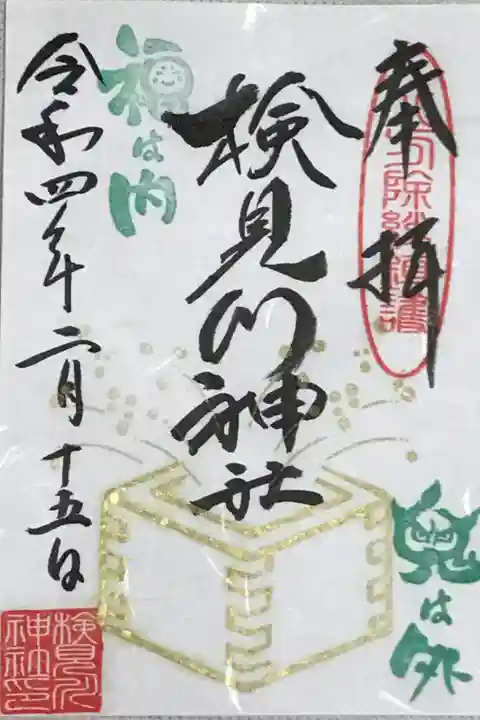 奉拝
八方除総鎮護
検見川神社
福は内
令和四年二月十五日
鬼は外
検見川
神社印